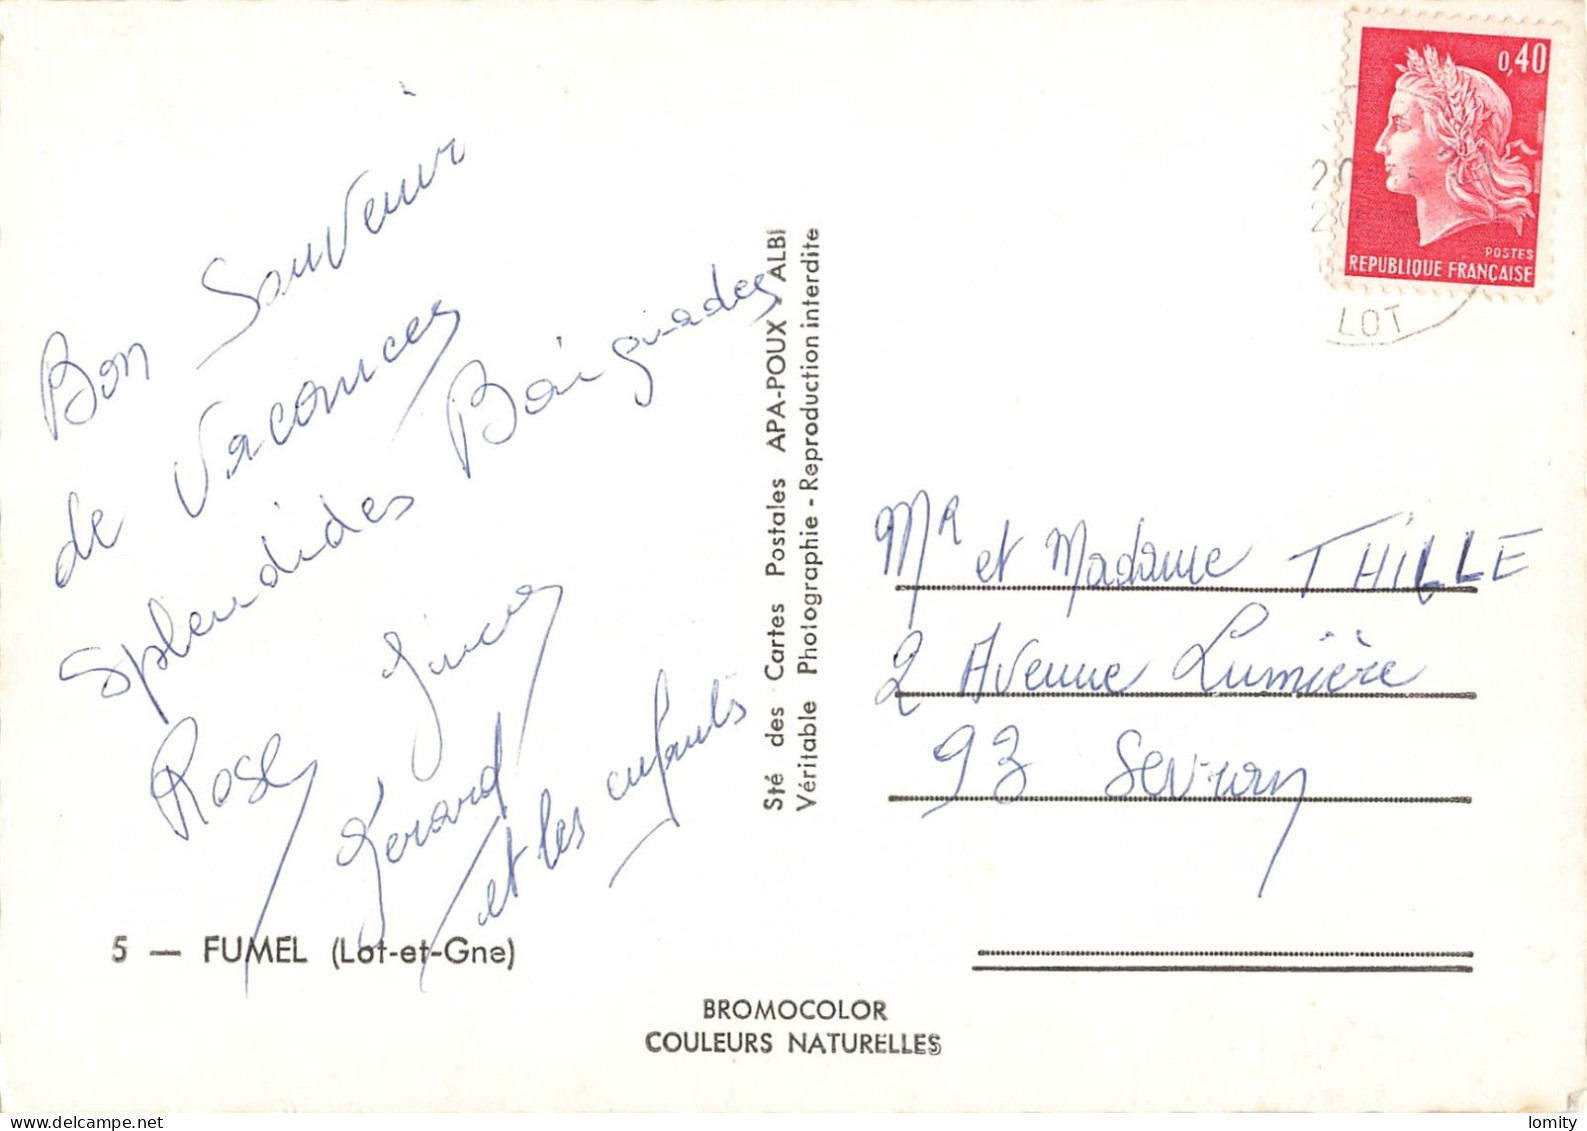 Bon Souvenir
de Vacances
splendides Baignades
Rose
Gerard
et les enfants
5 — FUMEL (Lot-et-Gne)
BROMOCOLOR
COULEURS NATURELLES
Sté des Cartes Postales APA-POUX ALBI
Véritable Photographie - Reproduction interdite
0,40
POSTES
REPUBLIQUE FRANÇAISE
LOT
Mr et Madame THILLE
2 Avenue Lumière
93 Sevran
lomity